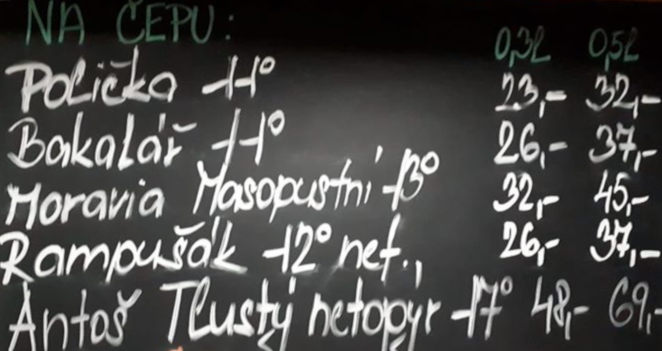 NA ČEPU: 0,3l 0,5l
Polička 11° 23,- 32,-
Bakalář 11° 26,- 37,-
Moravia Masopustní 13° 32,- 45,-
Rampušák 12° nef., 26,- 37,-
Antoš Tlustý netopýr 17° 48,- 69,-